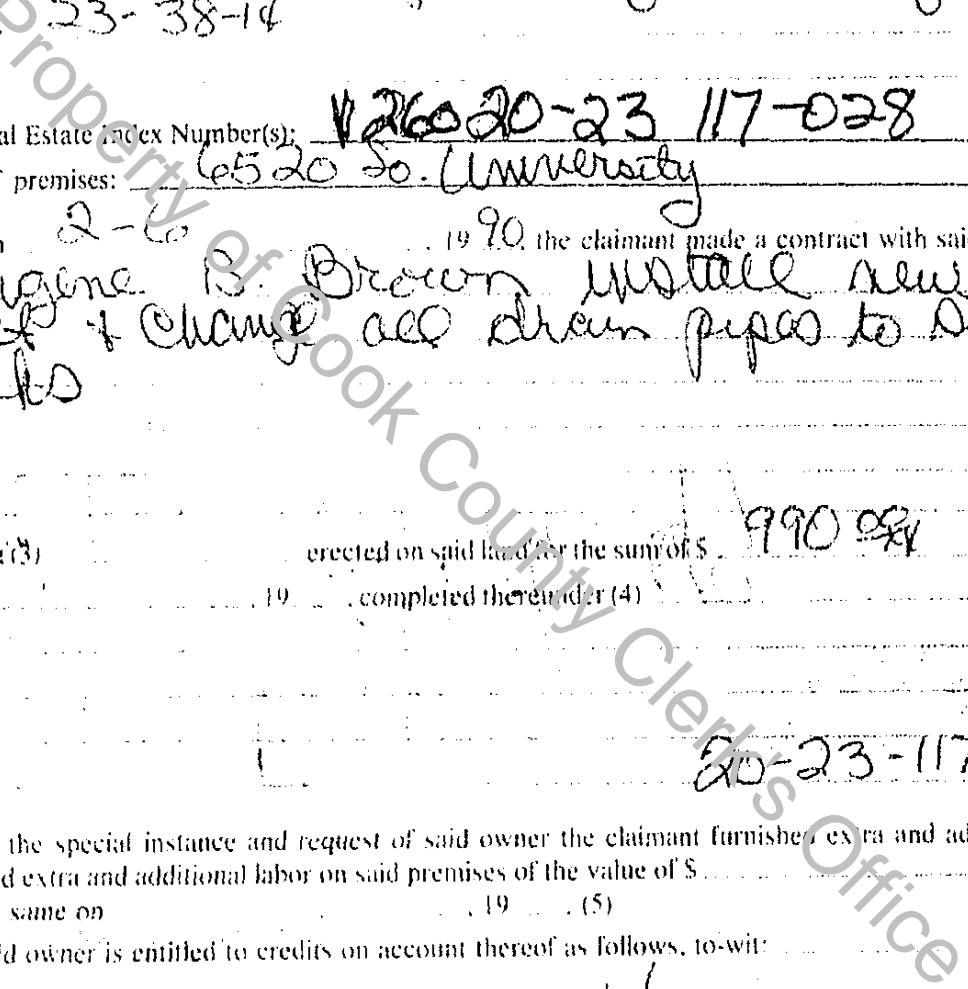 23-38-14
al Estate Index Number(s): V260 20-23 117-028
premises: 6520 So. University
2-6 , 1990, the claimant made a contract with sai
ugene B. Brown install new
& Change all drain pipes to S
ks
(3) erected on said land for the sum of $ 990 00/xx
, 19 , completed thereunder (4)
20-23-117
the special instance and request of said owner the claimant furnished extra and ad
d extra and additional labor on said premises of the value of $
same on , 19 . (5)
d owner is entitled to credits on account thereof as follows, to-wit:
Property of Cook County Clerk's Office